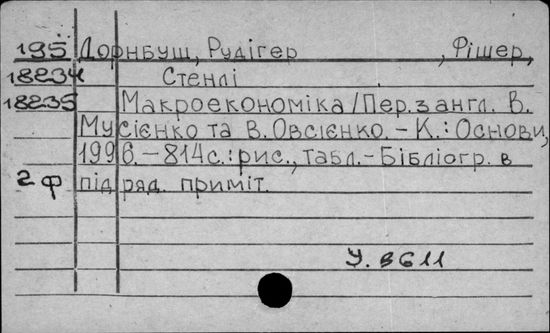 195 Дорнбуш, Рудігер , Фішер,
18234 Стенлі
18235 Макроекономіка / Пер. з англ. В.
Мусієнко та В. Овсієнко. – К. : Основи,
1996. – 814 с. : рис., табл. – Бібліогр. в
2 ф підряд. приміт.
У. 9611